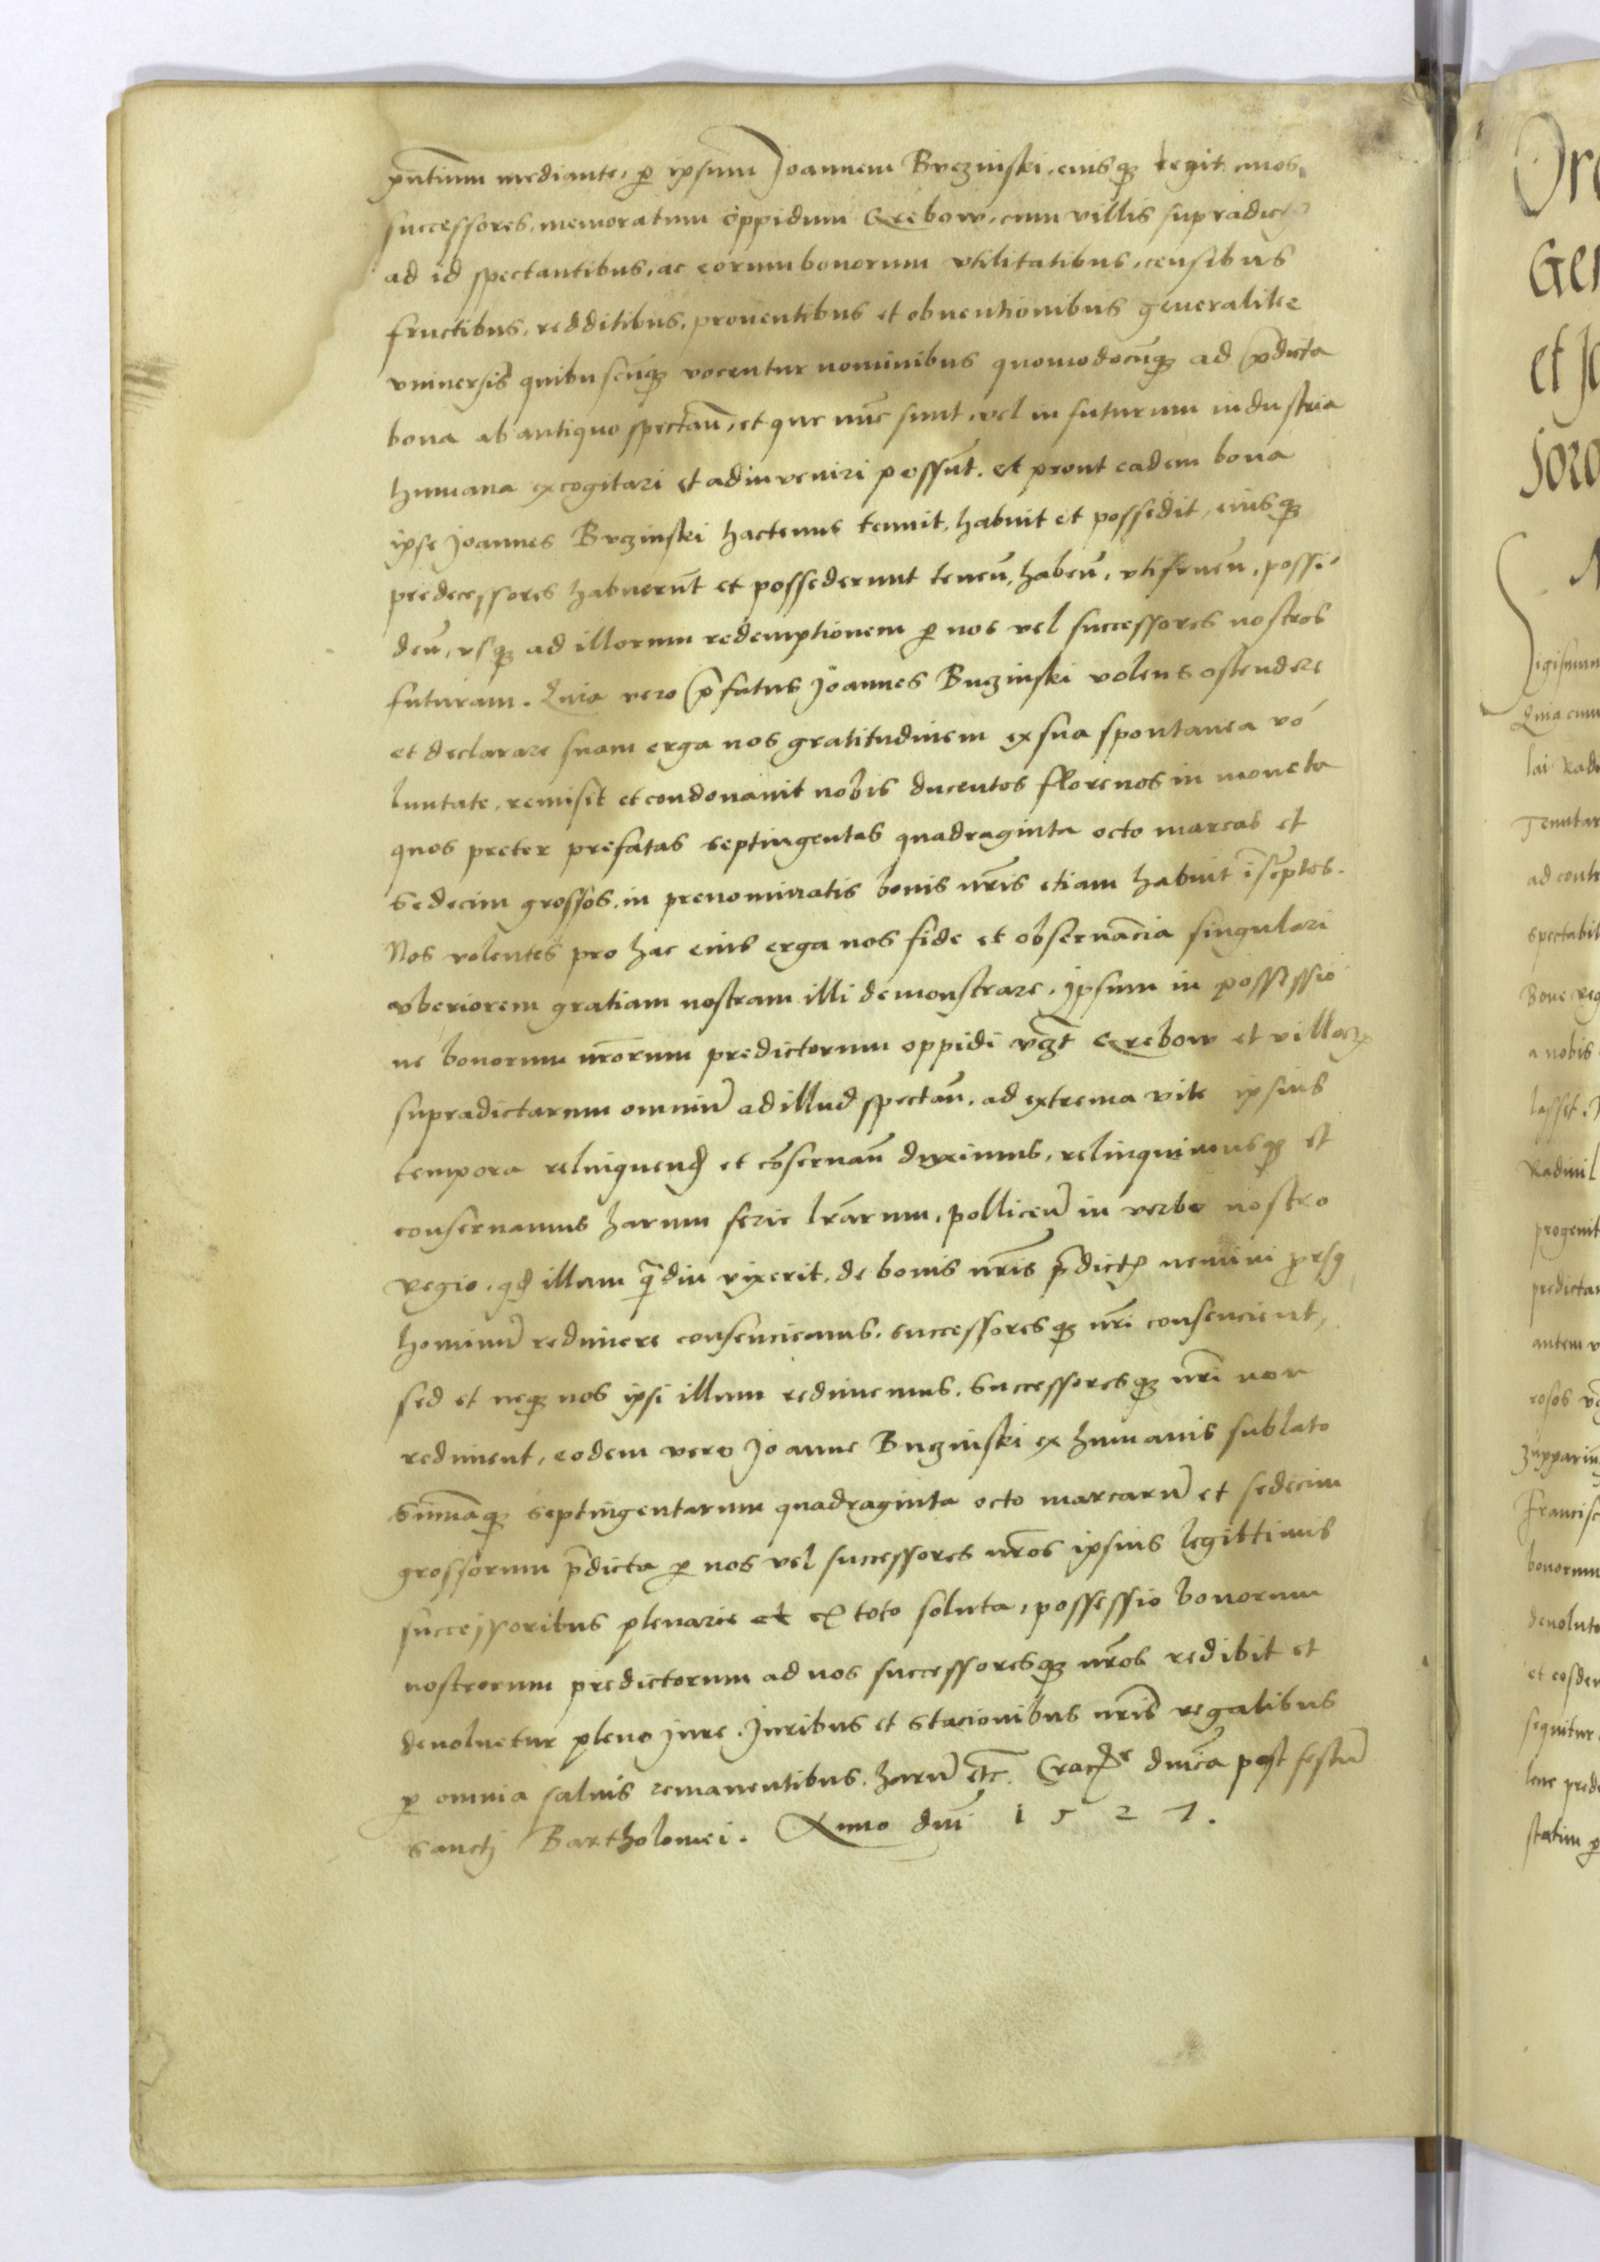 pntium mediante, p ipsum Joannem Buczinski, eiusq legit imos
successores, memoratum oppidum Grebow, cum villis supradict
ad id spectantibus, ac eorum bonorum vtilitatibus, censibus
fructibus, redditibus, prouentibus et obuentionibus generaliter
vniuersis quibuscunq vocentur nominibus quomodocunq ad pdicta
bona ab antiquo spectan, et que nunc sunt, vel in futurum industria
humana excogitari et adinveniri possunt. et prout eadem bona
ipse Joannes Buczinski hactenus tenuit, habuit et possedit, eiusq
predecessores habuerunt et possederunt tenen, haben, vtifruen, possi
den, vsq ad illorum redemptionem p nos vel successores nostros
futuram. Quia vero pfatus Joannes Buczinski volens ostendere
et declarare suam erga nos gratitudinem ex sua spontanea vo
luntate, remisit et condonauit nobis ducentos florenos in moneta
quos preter prefatas septingentas quadraginta octo marcas et
sedecim grossos, in prenominatis bonis nris etiam habuit iscptos.
Nos volentes pro hac eius erga nos fide et obseruancia singulari
vberiorem gratiam nostram illi demonstrare, ipsum in possessio
ne bonorum nrorum predictorum oppidi vgt Grebow et villoꝝ
supradictarum omniu ad illud spectan, ad extrema vite ipsius
tempora relinquend et conseruan duximus, relinquimusq et
conseruamus harum serie lrarum, pollicen in verbo nostro
regio, qd illam qdiu vixerit, de bonis nris pdict nemini prsq
hominu redimere consenciemus, successoresq nri consencient,
sed et neq nos ipsi illum redimemus, successoresq nri non
rediment, eodem vero Joanne Buczinski ex humanis sublato
Summaq septingentarum quadraginta octo marcaru et sedecim
grossorum pdicta p nos vel successores nros ipsius legittimis
successoribus plenarie et ex toto soluta, possessio bonorum
nostrorum predictorum ad nos successoresq nros redibit et
deuoluetur pleno jure. Juribus et stacionibus nris regalibus
p omnia saluis remanentibus. haru etc. Crac dnica post festu
sanctj Bartholomei. Anno dni 1527.
Ger
et Jo
Soro
Sigismun
Quia cum
Tenutar
ad contr
spectabil
Bone reg
a nobis
lasset
Radiuil
progenit
predictar
antem v
zupparius
Francisc
bonorum
deuolute
et eosden
sequitur
lene pred
statim p